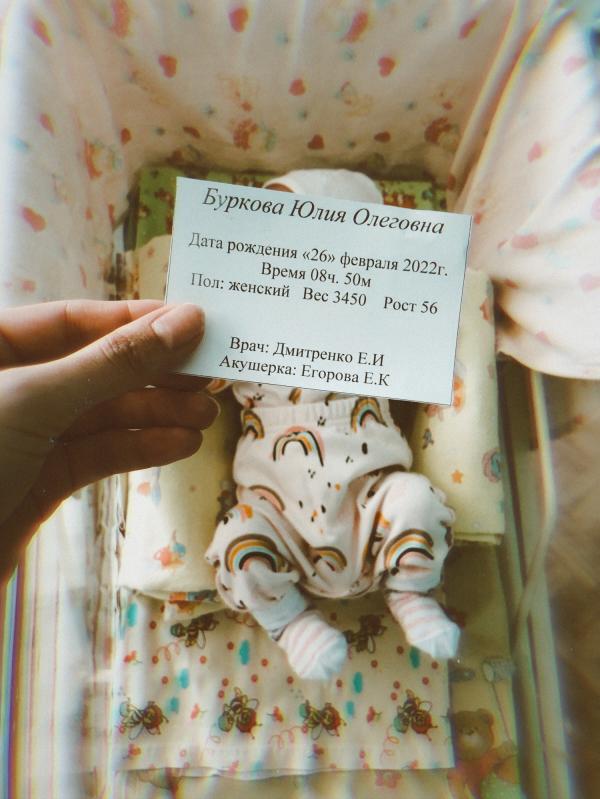 Буркова Юлия Олеговна
Дата рождения «26» февраля 2022г.
Время 08ч. 50м
Пол: женский Вес 3450 Рост 56
Врач: Дмитренко Е.И
Акушерка: Егорова Е.К